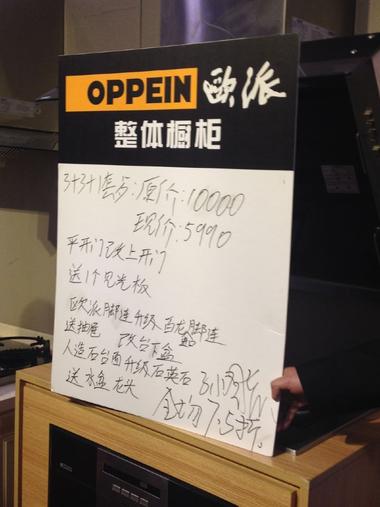 OPPEIN 欧派
整体橱柜
3+3+1套占:原价:10000
现价:5990
平开门改上开门
送1个见光板
欧派脚连升级百龙脚连
送抽屉 改台下盆
人造石台面升级石英石
送水盆龙头
全场7.5折